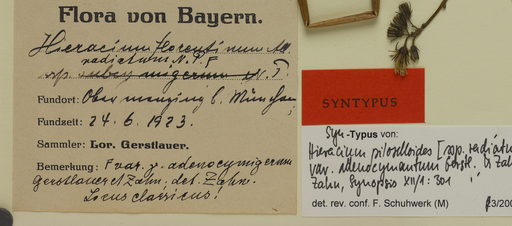 Flora von Bayern.
Hieracium florentinum All.
radiatum N. P. F
ssp. subcymigerum N. P.
Fundort: Obermenzing b. München,
Fundzeit: 24. 6. 1923.
Sammler: Lor. Gerstlauer.
Bemerkung: F var. γ. adenocymigerum
Gerstlauer et Zahn, det. Zahn.
Locus classicus!
SYNTYPUS
Syn-Typus von:
Hieracium piloselloides [ssp. radiatum
var. adenocymantum Gerstl. & Zahn
Zahn, Synopsis XII/1: 301
det. rev. conf. F. Schuhwerk (M)